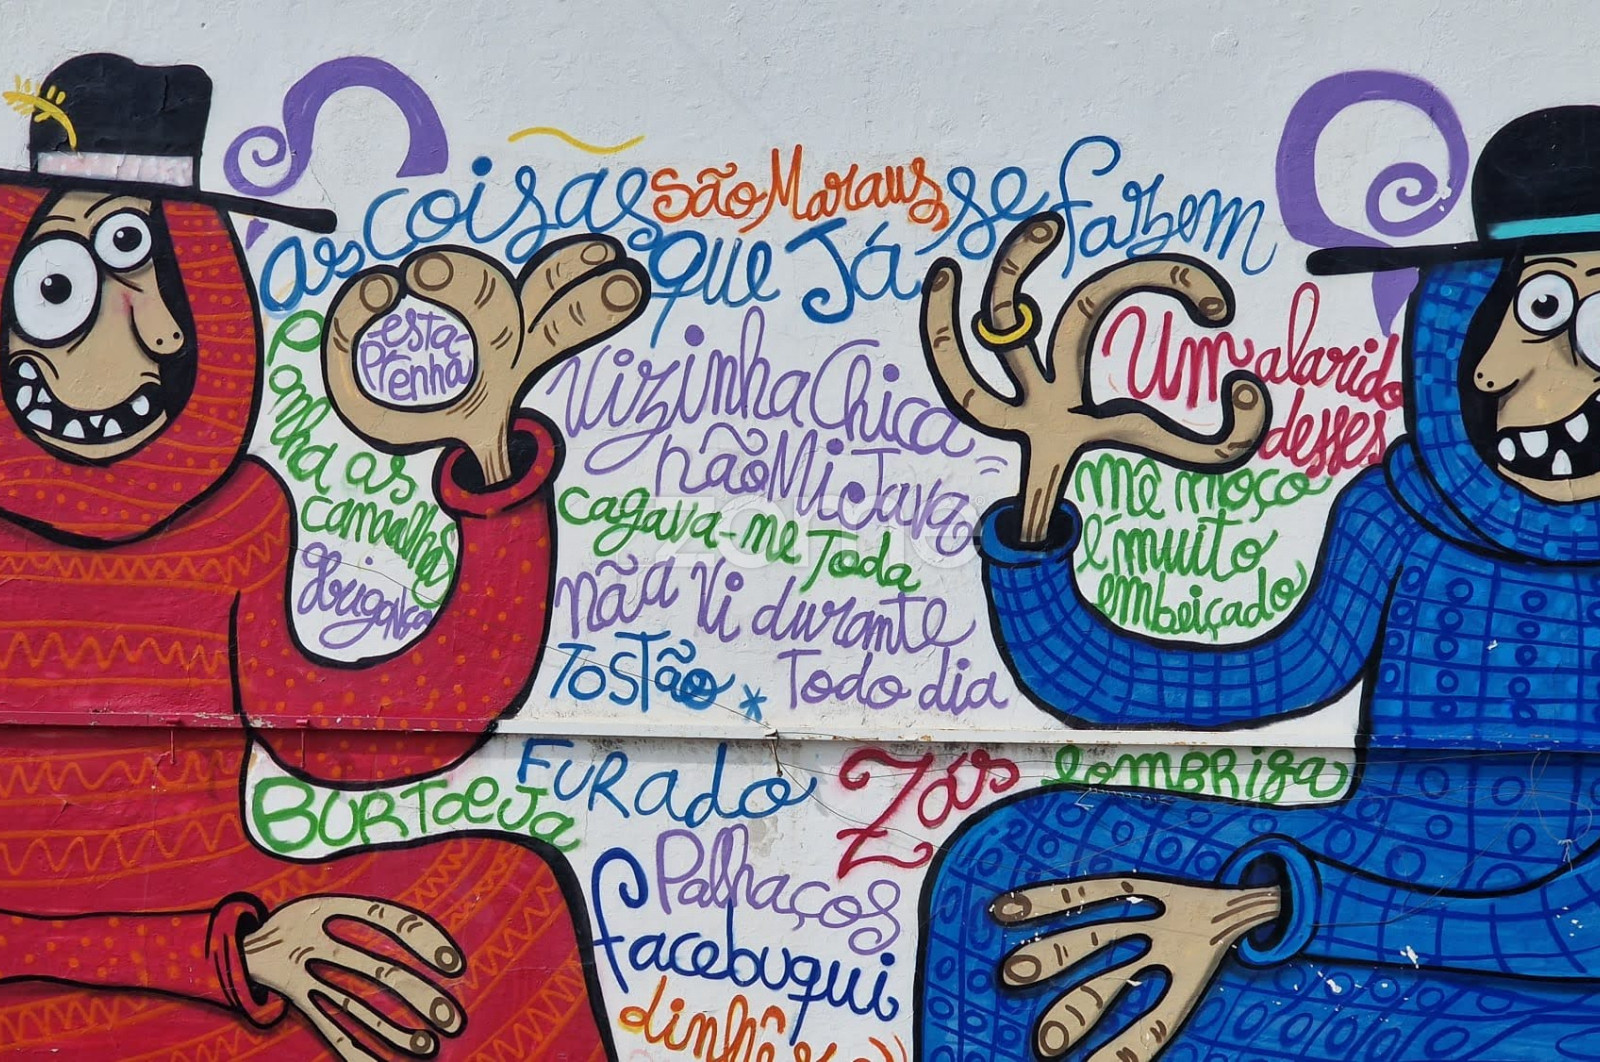 as coisas são Maraus, se fazem
que Já
está-
Prenha
Panha as
camaalhas
Grigonça
Vizinha Chica
não Mi Java
cagava-me Toda
não Vi durante
TOSTão * Todo dia
Um alarido
desses
me moço
é muito
embeiçado
BURToeJa
FURado
Zás
lomBRiga
Palhaços
facebuqui
dinhê